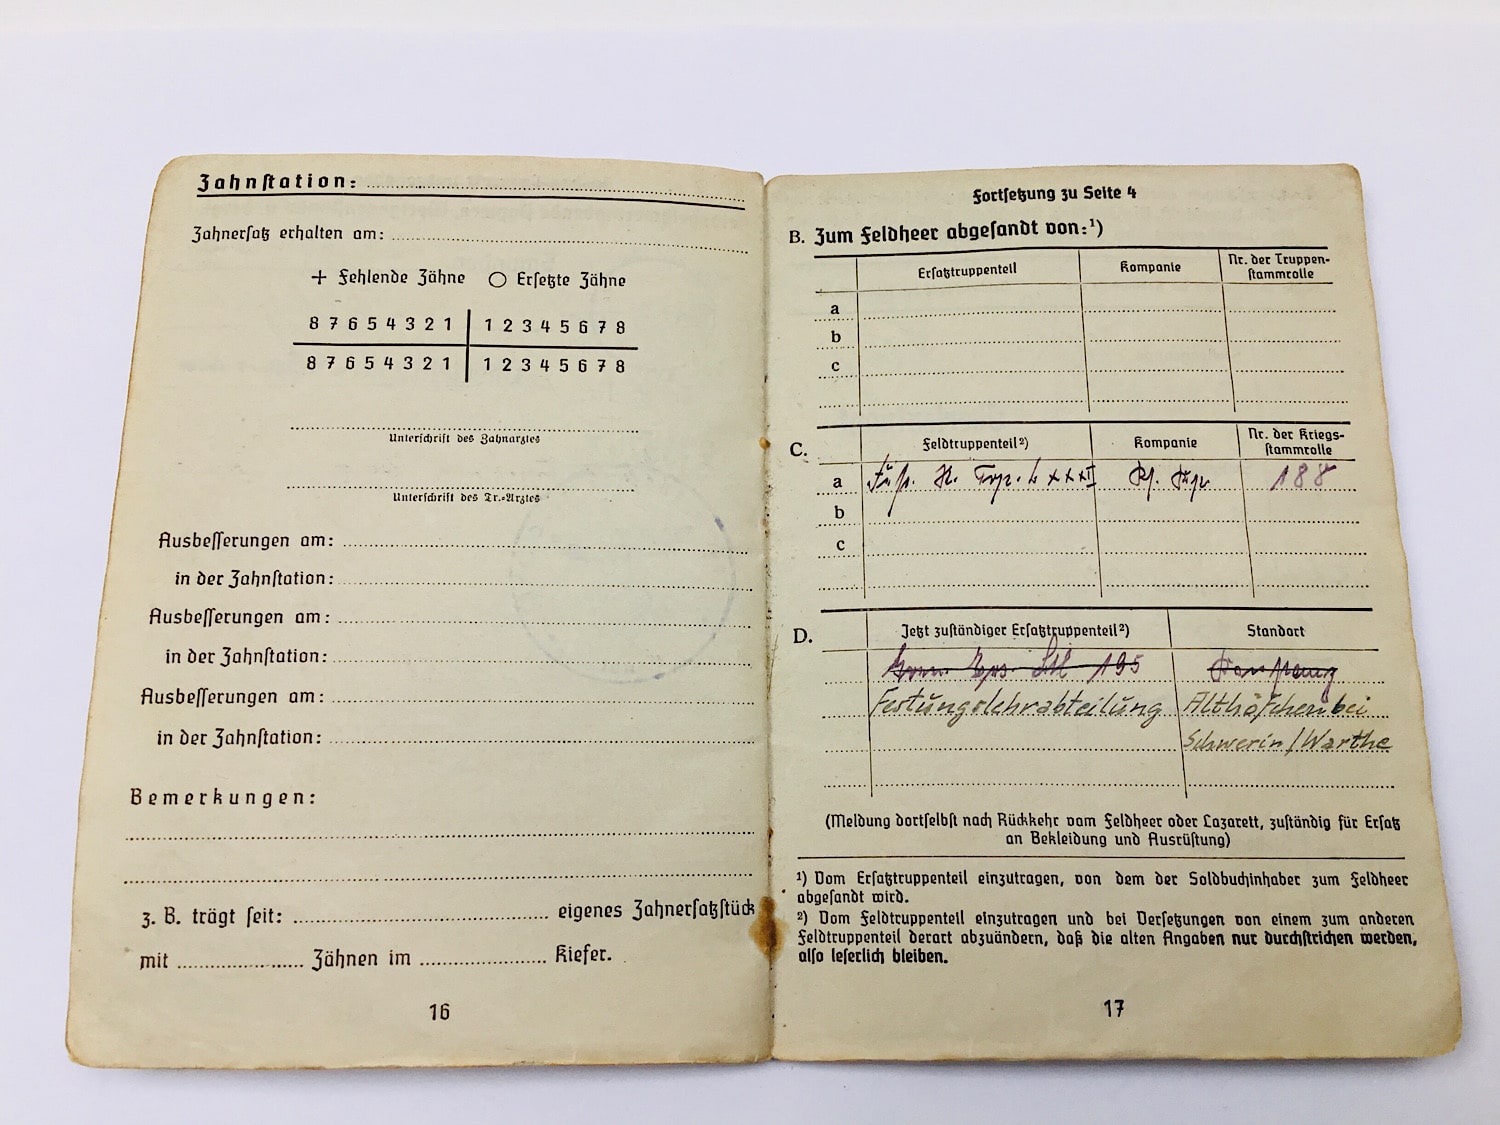 Zahnstation:
Zahnersatz erhalten am:
+ Fehlende Zähne ○ Ersetzte Zähne
8 7 6 5 4 3 2 1 | 1 2 3 4 5 6 7 8
8 7 6 5 4 3 2 1 | 1 2 3 4 5 6 7 8
Unterschrift des Zahnarztes
Unterschrift des Tr.-Arztes
Ausbesserungen am:
in der Zahnstation:
Ausbesserungen am:
in der Zahnstation:
Ausbesserungen am:
in der Zahnstation:
Bemerkungen:
z. B. trägt seit: eigenes Zahnersatzstück
mit Zähnen im Kiefer.
16
Fortsetzung zu Seite 4
B. Zum Feldheer abgesandt von:¹)
Ersatztruppenteil Kompanie Nr. der Truppen-
stammrolle
a
b
c
C. Feldtruppenteil²) Kompanie Nr. der Kriegs-
stammrolle
a 188
b
c
D. Jetzt zuständiger Ersatztruppenteil²) Standort
195
Festungslehrabteilung Althöfchen bei
Schwerin/Warthe
(Meldung dortselbst nach Rückkehr vom Feldheer oder Lazarett, zuständig für Ersatz
an Bekleidung und Ausrüstung)
¹) Vom Ersatztruppenteil einzutragen, von dem der Soldbuchinhaber zum Feldheer
abgesandt wird.
²) Vom Feldtruppenteil einzutragen und bei Versetzungen von einem zum anderen
Feldtruppenteil derart abzuändern, daß die alten Angaben nur durchstrichen werden,
also leserlich bleiben.
17